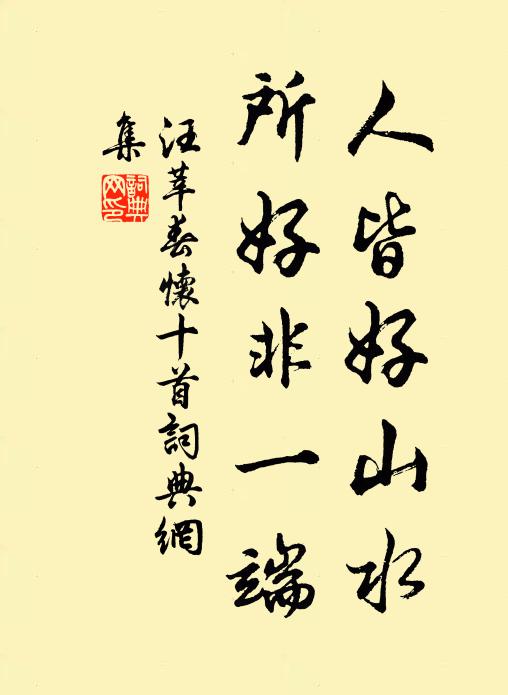 人皆好山水
所好非一端
汪莘春懷十首詞典網
集
詞典網印